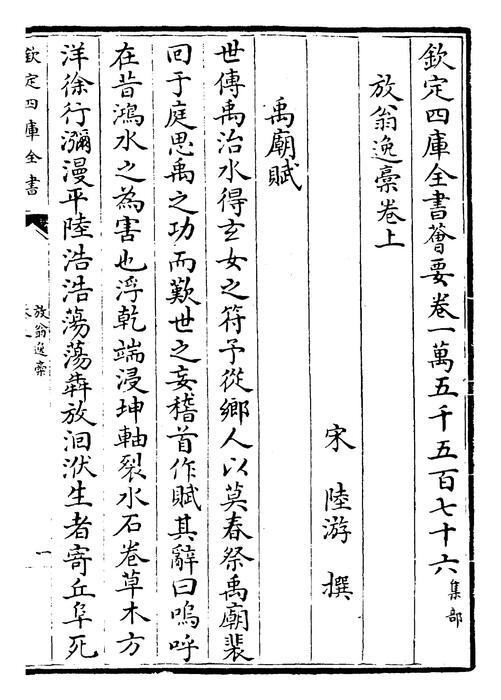 欽定四庫全書薈要卷一萬五千五百七十六集部
放翁逸稾卷上
宋陸游撰
禹廟賦
世傳禹治水得玄女之符予從鄉人以莫春祭禹廟裴
回于庭思禹之功而歎世之妄稽首作賦其辭曰嗚呼
在昔鴻水之為害也浮乾端浸坤軸裂水石卷草木方
洋徐行瀰漫平陸浩浩蕩蕩犇放洄洑生者寄丘阜死
欽定四庫全書
放翁逸稾
一